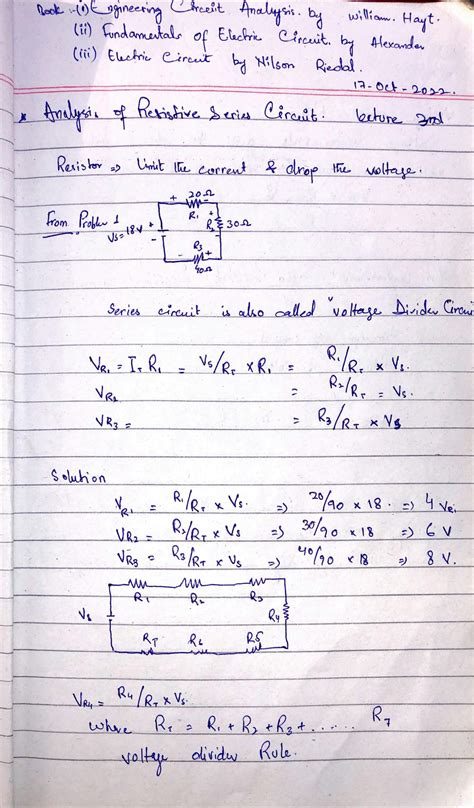 Book :- (i) Engineering Circeit Analysis. by William. Hayt.
(ii) Fundamentals of Electric Circuit. by Alexander
(iii) Electric Circuit by Nilson Riedal.
17-Oct-2022.
* Analysis of Resistive Series Circuit. lecture 3rd
Resistor => Limit the current & drop the voltage.
20Ω
From Problem 1
Vs=18V
+ - R1 + R2 30Ω
R3
- +
40Ω
Series circuit is also called "voltage Divider Circui
VR1 = IT R1 = Vs/RT × R1 = R1/RT × Vs.
VR2 = R2/RT = Vs.
VR3 = = R3/RT × Vs
Solution
VR1 = R1/RT × Vs. => 20/90 × 18 => 4 VR1
VR2 = R2/RT × Vs => 30/90 × 18 => 6 V
VR3 = R3/RT × Vs => 40/90 × 18 => 8 V.
R1 R2 R3
Vs R4
R7 R6 R5
VR4 = R4/RT × Vs
where RT = R1 + R2 + R3 + ...... R7
voltage divider Rule.